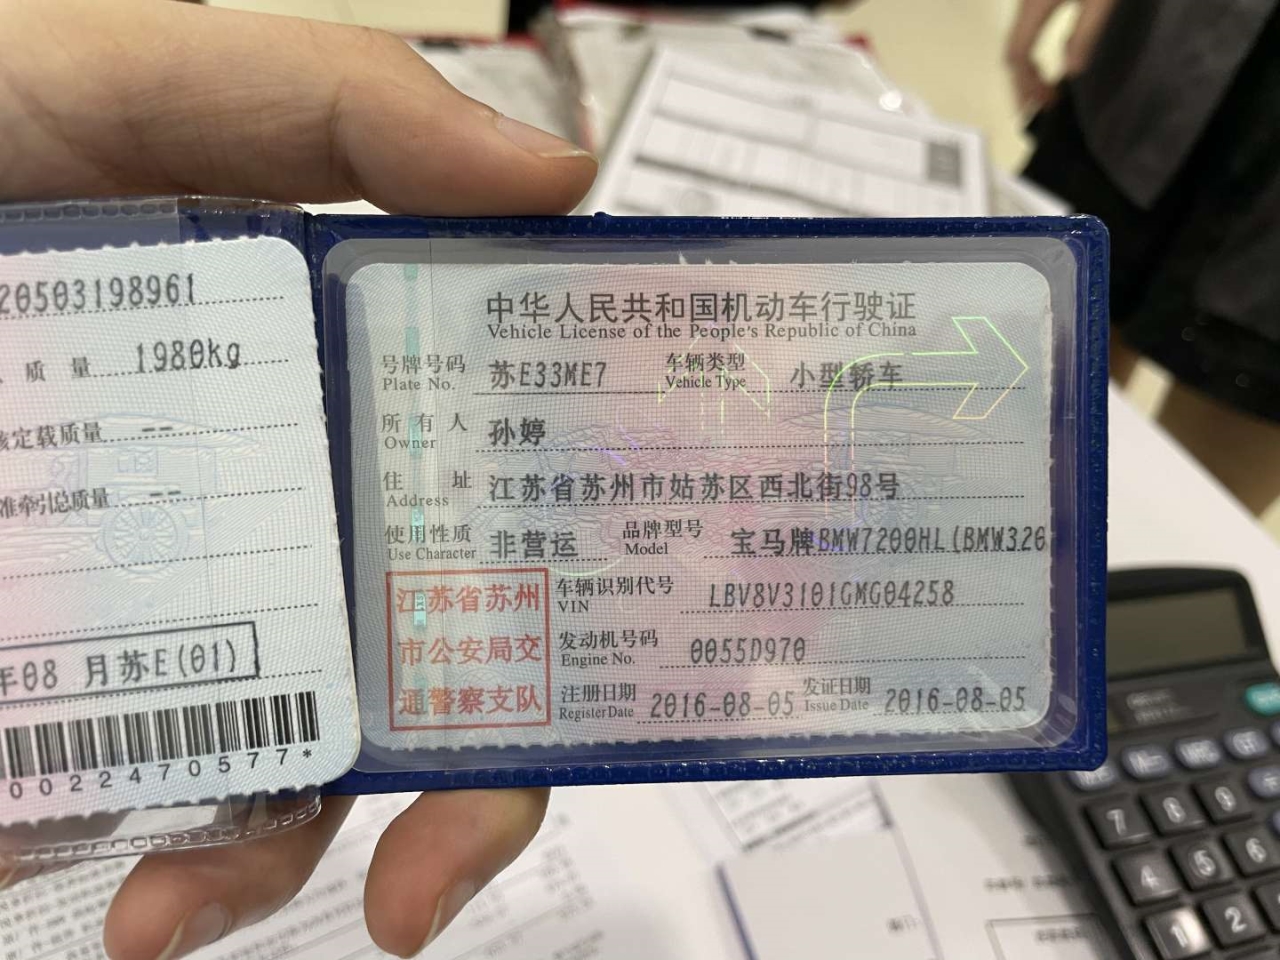 20503198961
质 量 1980kg
核定载质量 --
准牵引总质量 --
年08 月苏E(01)
002247057 7*
中华人民共和国机动车行驶证
Vehicle License of the People's Republic of China
号牌号码 苏E33ME7 车辆类型 小型轿车
Plate No. Vehicle Type
所有人 孙婷
Owner
住 址 江苏省苏州市姑苏区西北街98号
Address
使用性质 非营运 品牌型号 宝马牌BMW7200HL(BMW320
Use Character Model
江苏省苏州
市公安局交
通警察支队
车辆识别代号 LBV8V3101GMG04258
VIN
发动机号码 0055D970
Engine No.
注册日期 2016-08-05 发证日期 2016-08-05
Register Date Issue Date
7 8 9
4 5 6
1 2